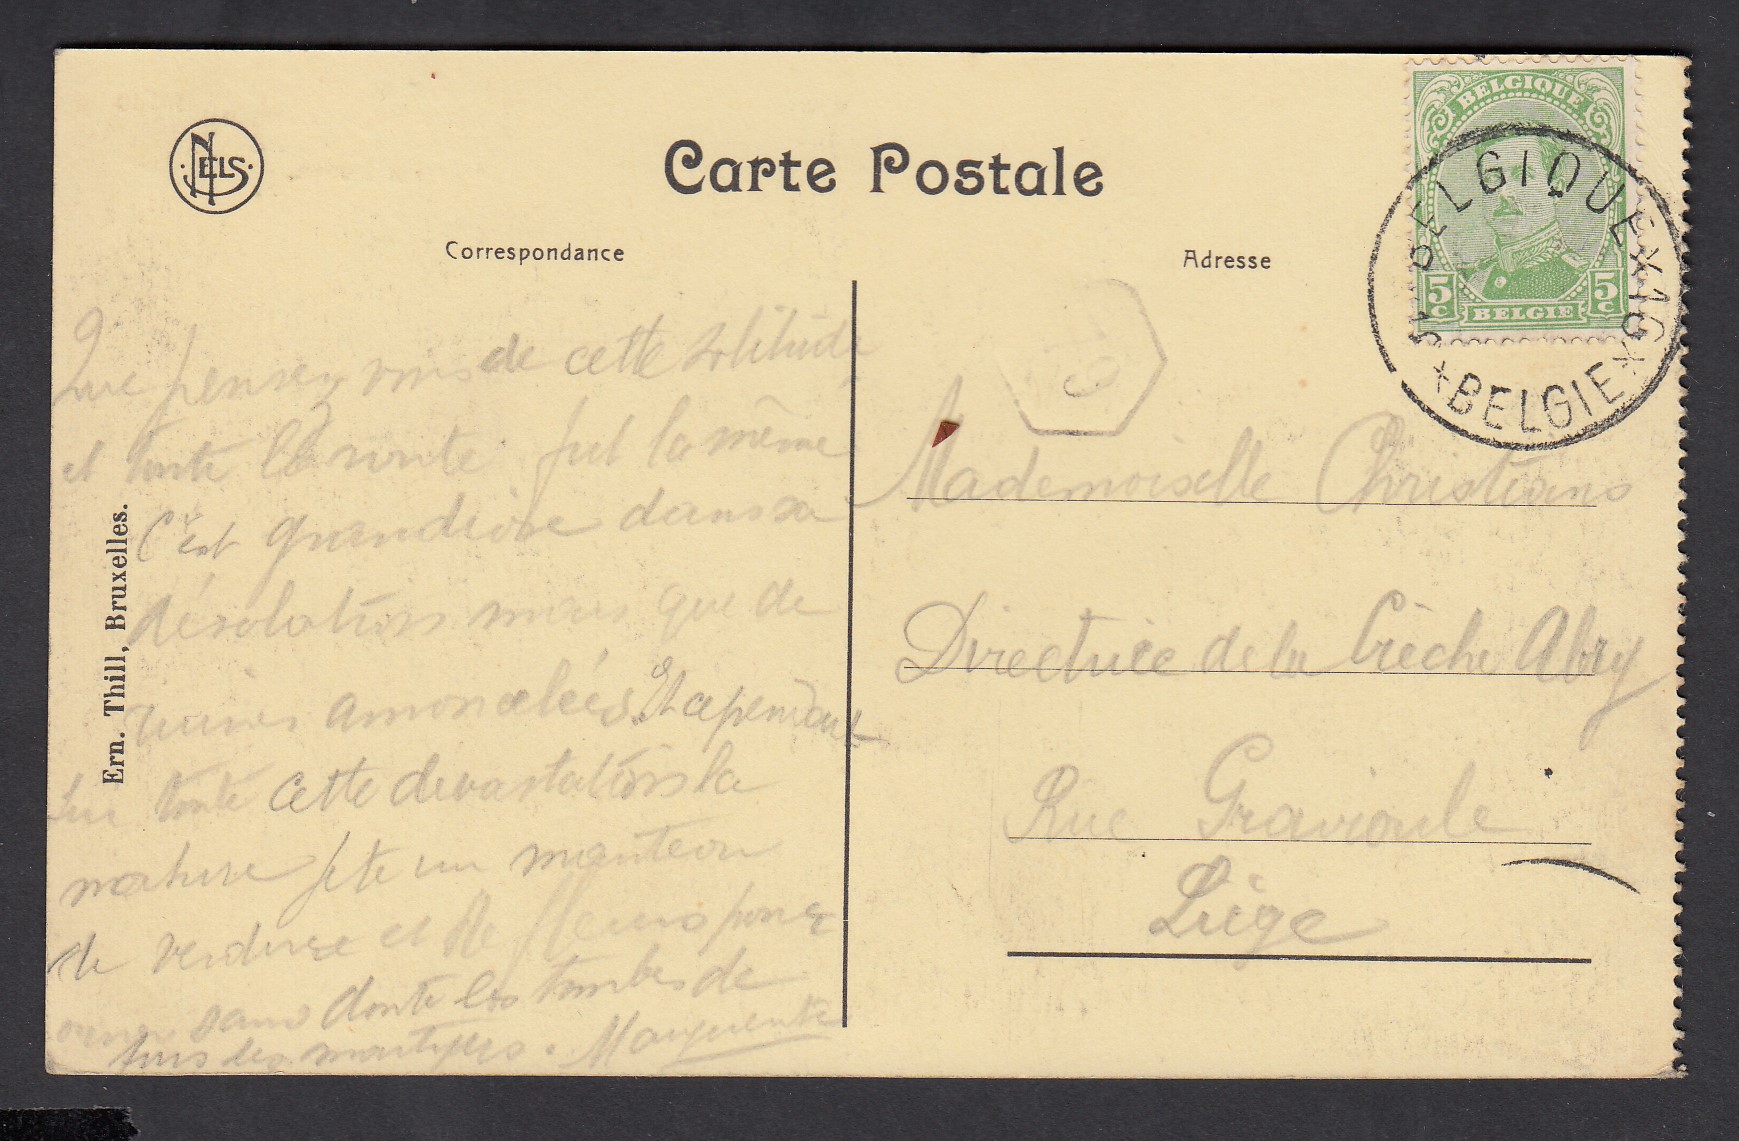 NELS
Carte Postale
Correspondance
Adresse
BELGIQUE
5c 5c
BELGIE
BELGIQUE
BELGIE
Que pensez vous de cette solitude
et toute la route fut la même
C'est grandiose dans sa
désolation mais que de
ruines amoncelées. Et cependant
sur toute cette devastation la
nature jete un manteau
de verdure et de fleurs pour
orner sans doute les tombes de
tous les martyrs. Marguerite
Mademoiselle Christians
Directrice de la Crèche Abry
Rue Gravioule
Liège
Ern. Thill, Bruxelles.